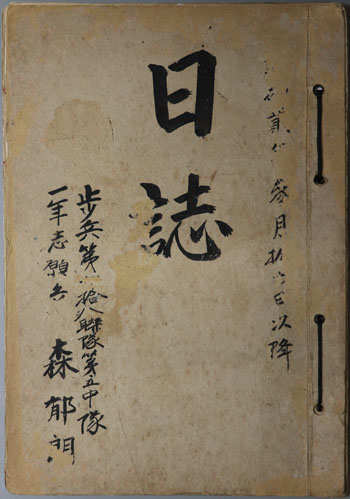 貳 参月 日以降
日誌
歩兵第 拾八聯隊第五中隊
一年志願兵 森 郁